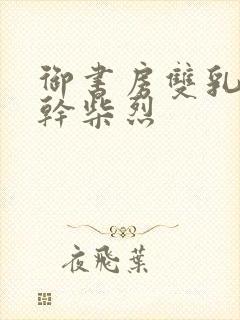 御書房雙乳
幹柴烈
夜飛葉